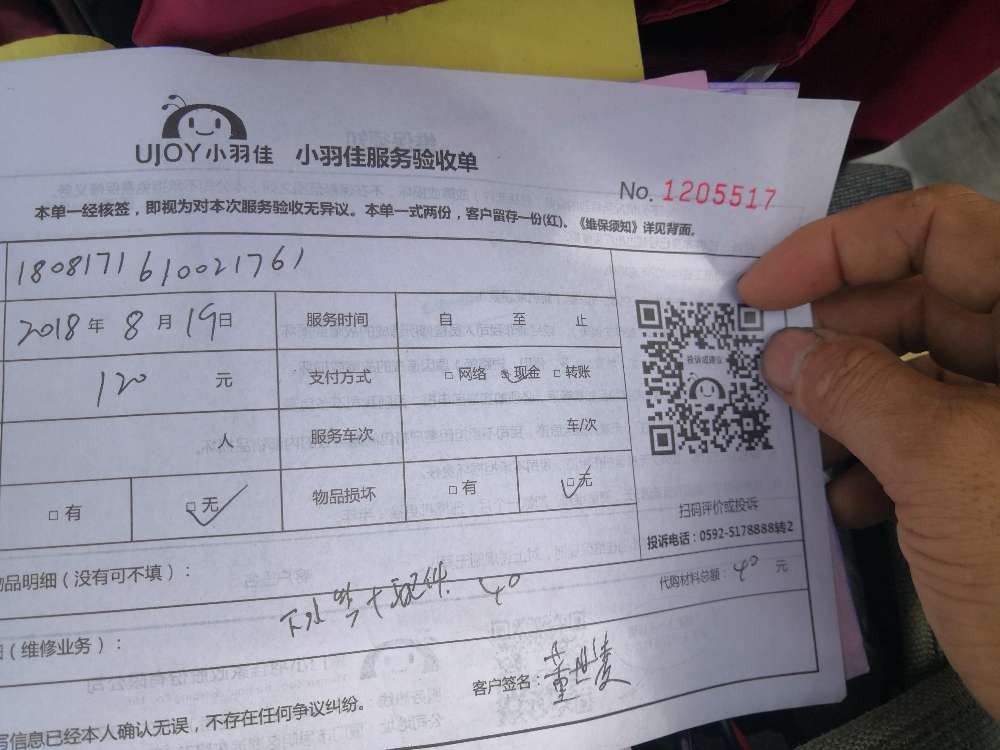 UJOY小羽佳 小羽佳服务验收单
No. 1205517
本单一经核签，即视为对本次服务验收无异议。本单一式两份，客户留存一份(红)。《维保须知》详见背面。
1808171610021761
2018年8月19日 服务时间 自 至 止
120 元 支付方式 □网络 □现金 □转账
人 服务车次 车/次
□有 □无 物品损坏 □有 □无
投诉或建议
扫码评价或投诉
投诉电话：0592-5178888转2
物品明细（没有可不填）：
下水 40
代购材料总额：40 元
（维修业务）：
客户签名：
写信息已经本人确认无误，不存在任何争议纠纷。